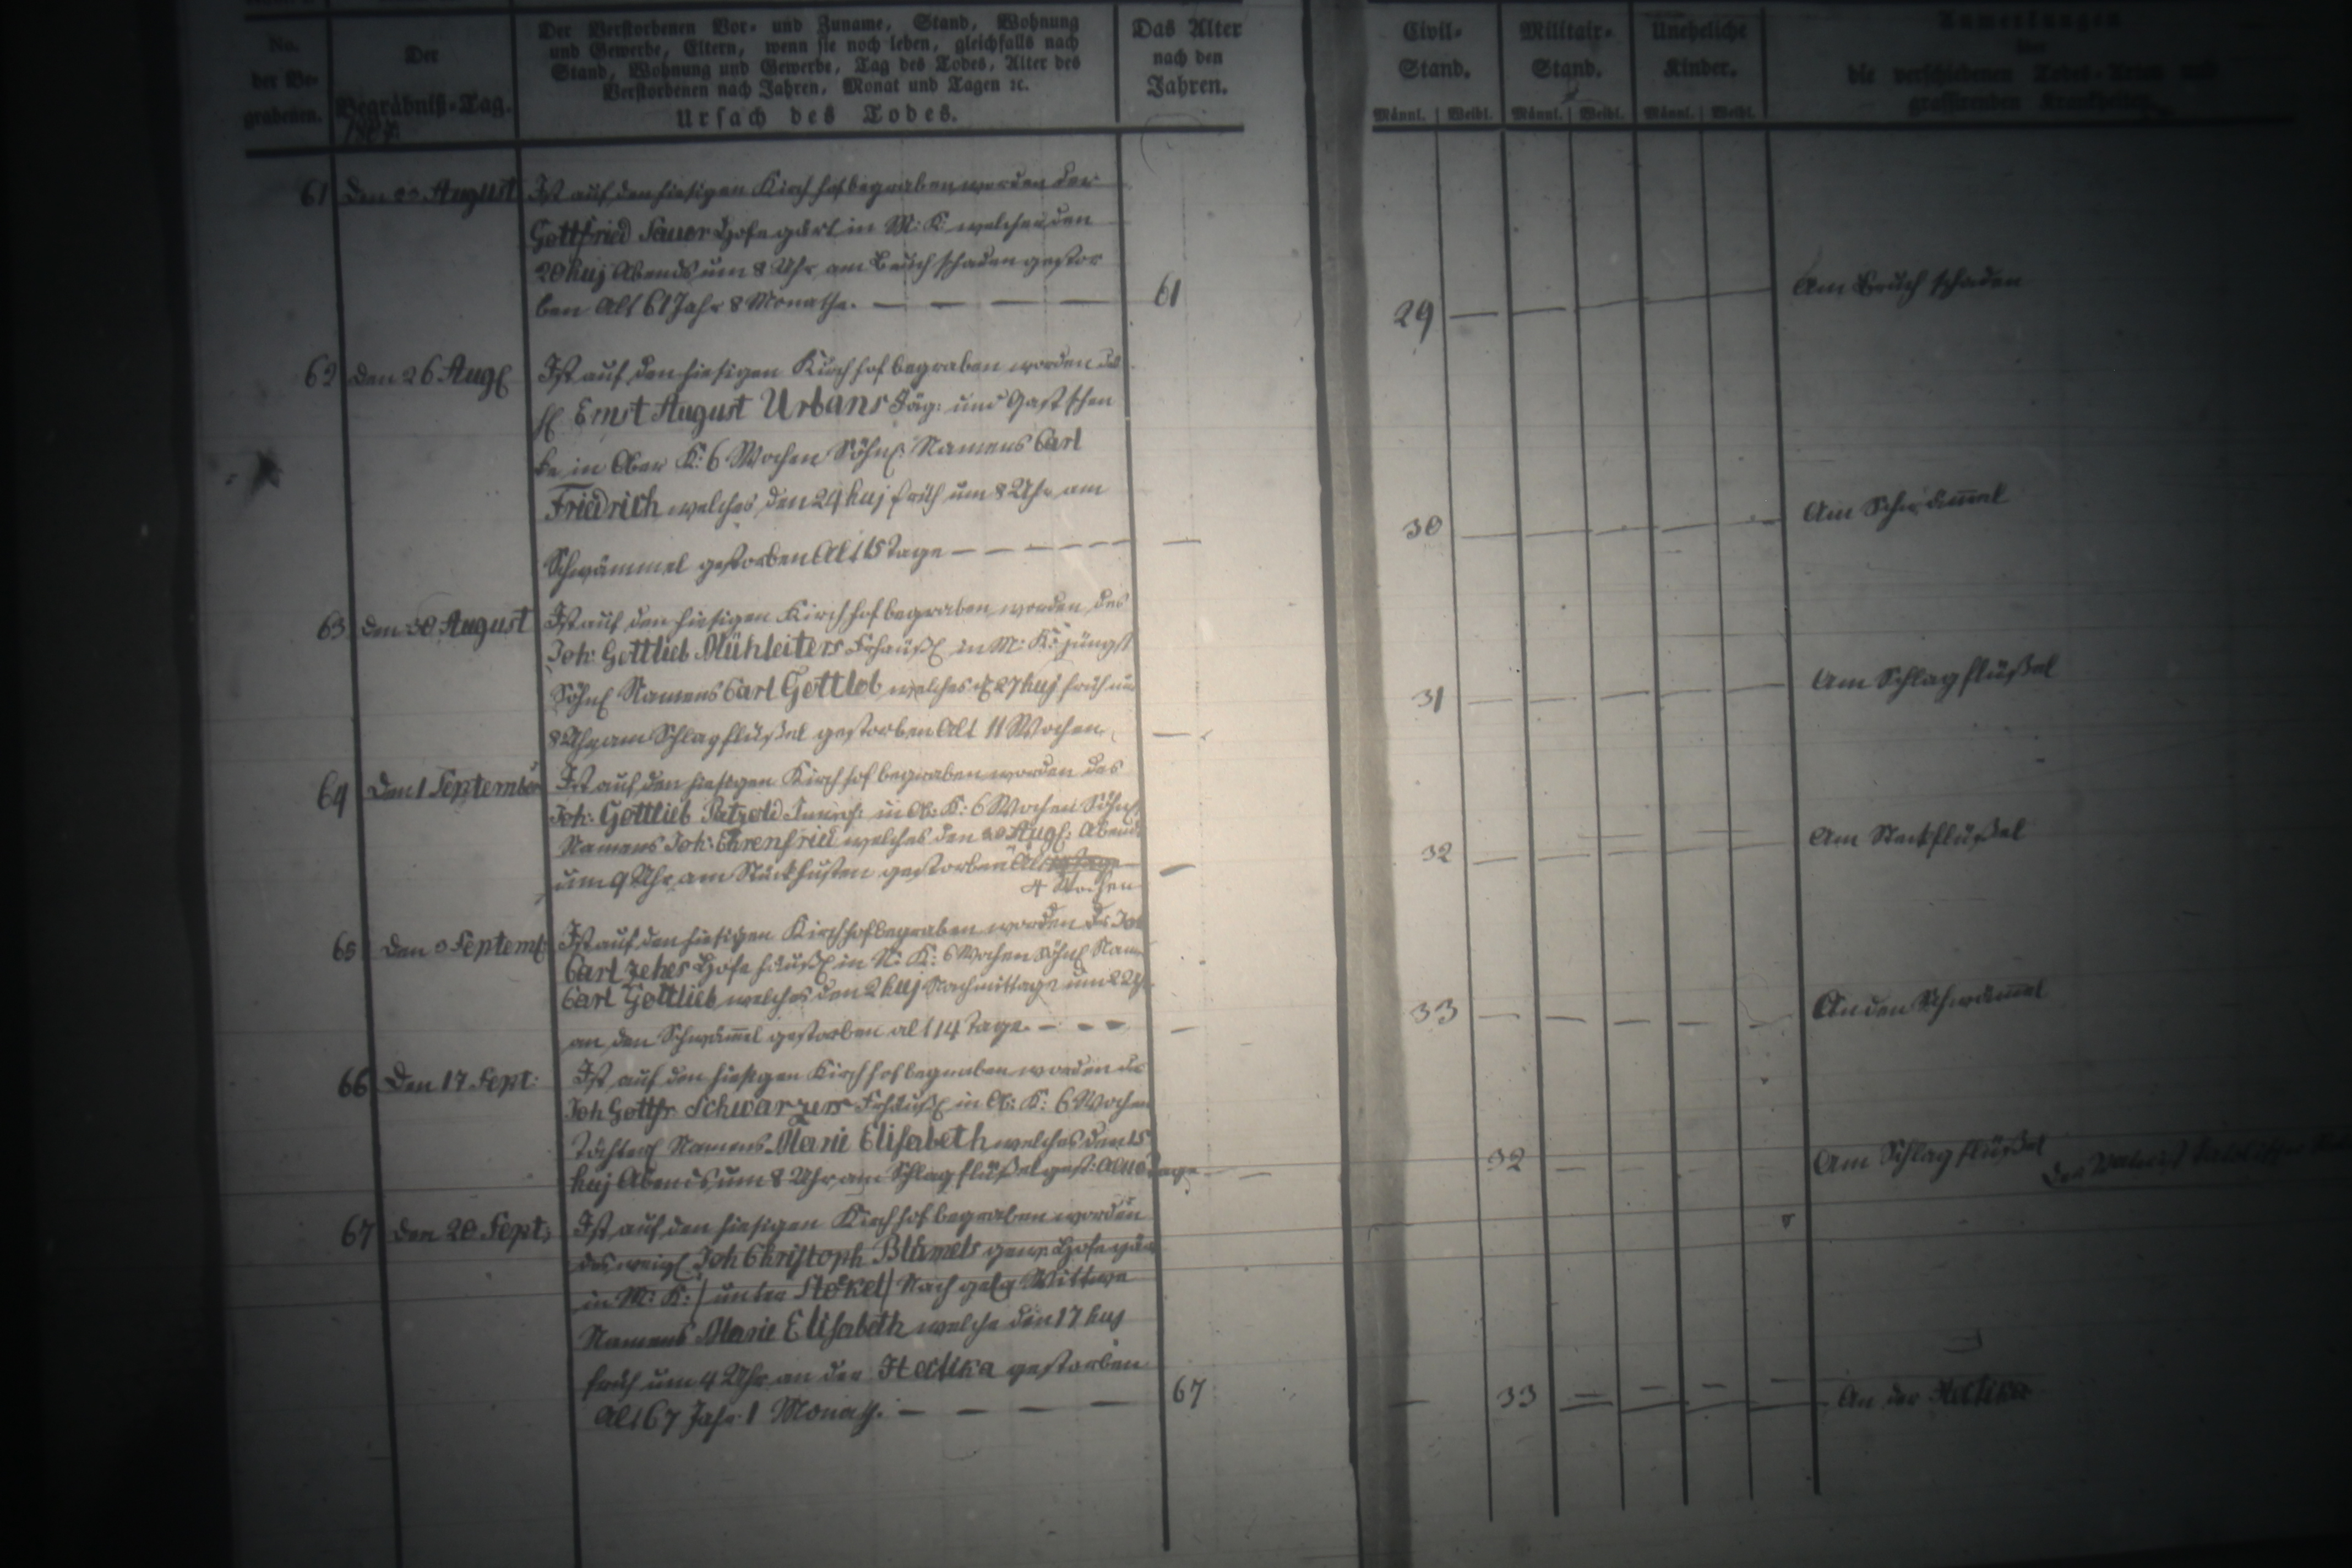 No.
der Be-
grabenen.
Der
Begräbniß-Tag.
Der Verstorbenen Vor- und Zuname, Stand, Wohnung
und Gewerbe, Eltern, wenn sie noch leben, gleichfalls nach
Stand, Wohnung und Gewerbe, Tag des Todes, Alter des
Verstorbenen nach Jahren, Monat und Tagen ꝛc.
Ursach des Todes.
Das Alter
nach den
Jahren.
Civil-
Stand.
Männl. Weibl.
Militair-
Stand.
Männl. Weibl.
Uneheliche
Kinder.
Männl. Weibl.
Anmerkungen
über
die verschiedenen Todes-Arten und
grassirenden Krankheiten.
61 Den August Ist auf den hiesigen Kirchhof begraben worden der
Gottfried Hofegärt in M: K: welcher den
20 huj Abends um 8 Uhr am Bruchschaden gestor
ben Alt 61 Jahr 8 Monathe. 61 29 Am Bruchschaden
62 Den 26 Aug Ist auf den hiesigen Kirchhof begraben worden des
Ernst August Urbans und Gastschen
ke in Ober K: 6 Wochen Söhnl Namens Carl
Friedrich welches den 24 huj früh um 8 Uhr am
Schwämmel gestorben Alt 15 Tage 30 Am Schwämel
63 Den 30 August Ist auf den hiesigen Kirchhof begraben worden des
Joh: Gottlieb Mühleiters in M: K: jüngst
Söhnl Namens Carl Gottlob welches 27 huj früh um
8 Uhr am Schlagflüßel gestorben Alt 11 Wochen 31 Am Schlagflüßel
64 Den 1 September Ist auf den hiesigen Kirchhof begraben worden des
Joh: Gottlieb Patzold in Ob: K: 6 Wochen Söhnl
Namens Joh: Ehrenfried welches den Aug: Abends
um 9 Uhr am Stickhusten gestorben Alt
4 Wochen 32 Am Steckflüßel
65 Den 3 Septemb Ist auf den hiesigen Kirchhof begraben worden des Joh
Carl Zehes Hofehäußl in N: K: 6 Wochen Söhnl Nam
Carl Gottlieb welches den 2 huj Nachmittage um 2 Uhr
an den Schwämel gestorben alt 14 Tage 33 An den Schwämel
66 Den 17 Sept: Ist auf den hiesigen Kirchhof begraben worden des
Joh Gottfr Schwarzers in Ob: K: 6 Wochen
Töchterl Namens Marie Elisabeth welches den 15
huj Abends um 8 Uhr am Schlagflüßel gest: Tage 32 Am Schlagflüßel
67 Den 20 Sept: Ist auf den hiesigen Kirchhof begraben worden
des weil Joh Christoph Blümels Hofegär
in M: K: unter Nachgelg Wittwe
Namens Marie Elisabeth welche den 17 huj
früh um 4 Uhr an der Hectika gestorben
Alt 67 Jahr 1 Monath. 67 33 An der Hectika